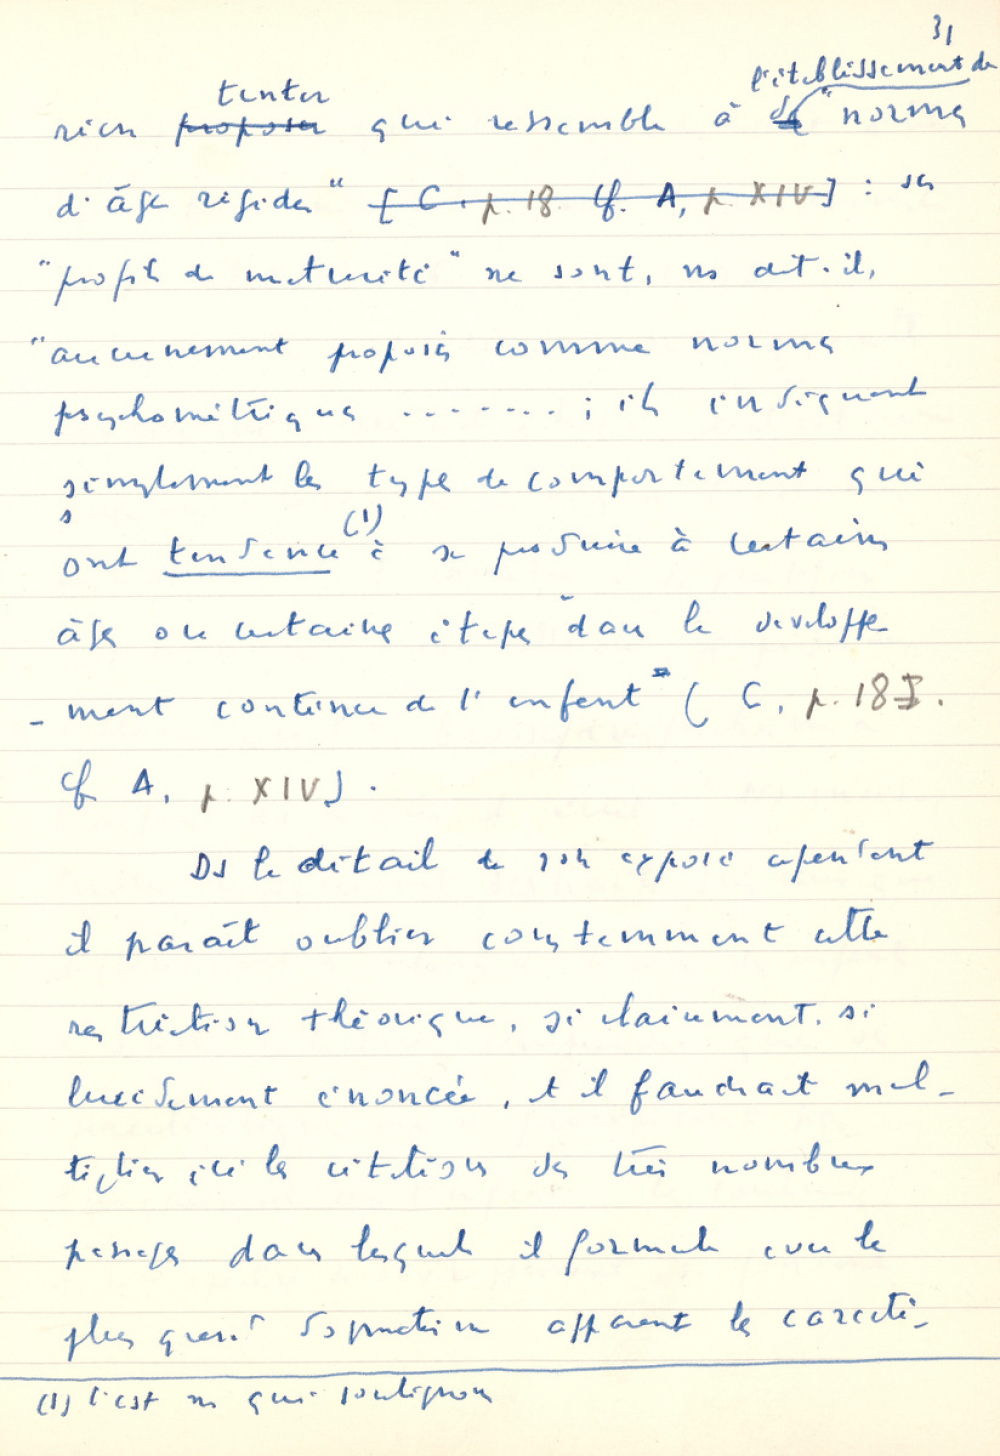 31
tenter l'établissement de
rien proposer qui ressemble à de "normes
d'âge rigides" [C. p. 18 cf. A, p. XIV] : ses
"profils de maturité" ne sont, ns dit-il,
"aucunement proposés comme normes
psychométriques ........ ; ils indiquent
simplement les types de comportement qui
s
ont tendance (1) à se produire à certains
âges ou certaines étapes dans le développe
-ment continu de l'enfant" ( C, p. 18.
cf A, p. XIV) .
Ds le détail de son exposé cependant
il paraît oublier constamment cette
restriction théorique, si clairement, si
lucidement énoncée, et il faudrait mul-
tiplier ici les citations des très nombreux
passages dans lesquels il formule avec le
plus grand dogmatisme apparent les caracté-
(1) C'est ns qui soulignons